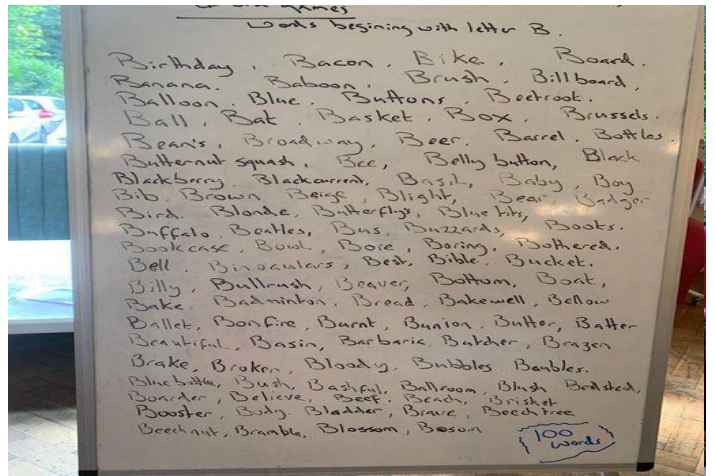 games
Words begining with letter B.
Birthday, Bacon, Bike, Board.
Banana. Baboon, Brush, Billboard,
Balloon, Blue, Buttons, Beetroot.
Ball, Bat, Basket, Box, Brussels.
Bean's, Broadway, Beer, Barrel, Bottles.
Butternut squash, Bee, Belly button, Black
Blackberry, Blackcurrent, Basil, Baby, Boy
Bib, Brown, Beige, Blight, Bear, Badger
Bird, Blonde, Butterfly's, Blue tits,
Buffalo, Beatles, Bus, Buzzards, Books.
Bookcase, Bowl, Bore, Boring, Bothered.
Bell, Binoculars, Best, Bible, Bucket.
Billy, Bullrush, Beaver, Bottom, Boat,
Bake, Badminton, Bread, Bakewell, Bellow
Ballet, Bonfire, Burnt, Bunion, Butter, Batter
Beautiful, Basin, Barbaric, Butcher, Brazen
Brake, Broken, Bloody, Bubbles, Baubles.
Bluebottle, Bush, Bashful, Ballroom, Blush, Bedstead,
Boarder, Believe, Beef, Beach, Brisket
Booster, Body, Bladder, Brave, Beech tree
Beechnut, Bramble, Blossom, Bosom
100
words